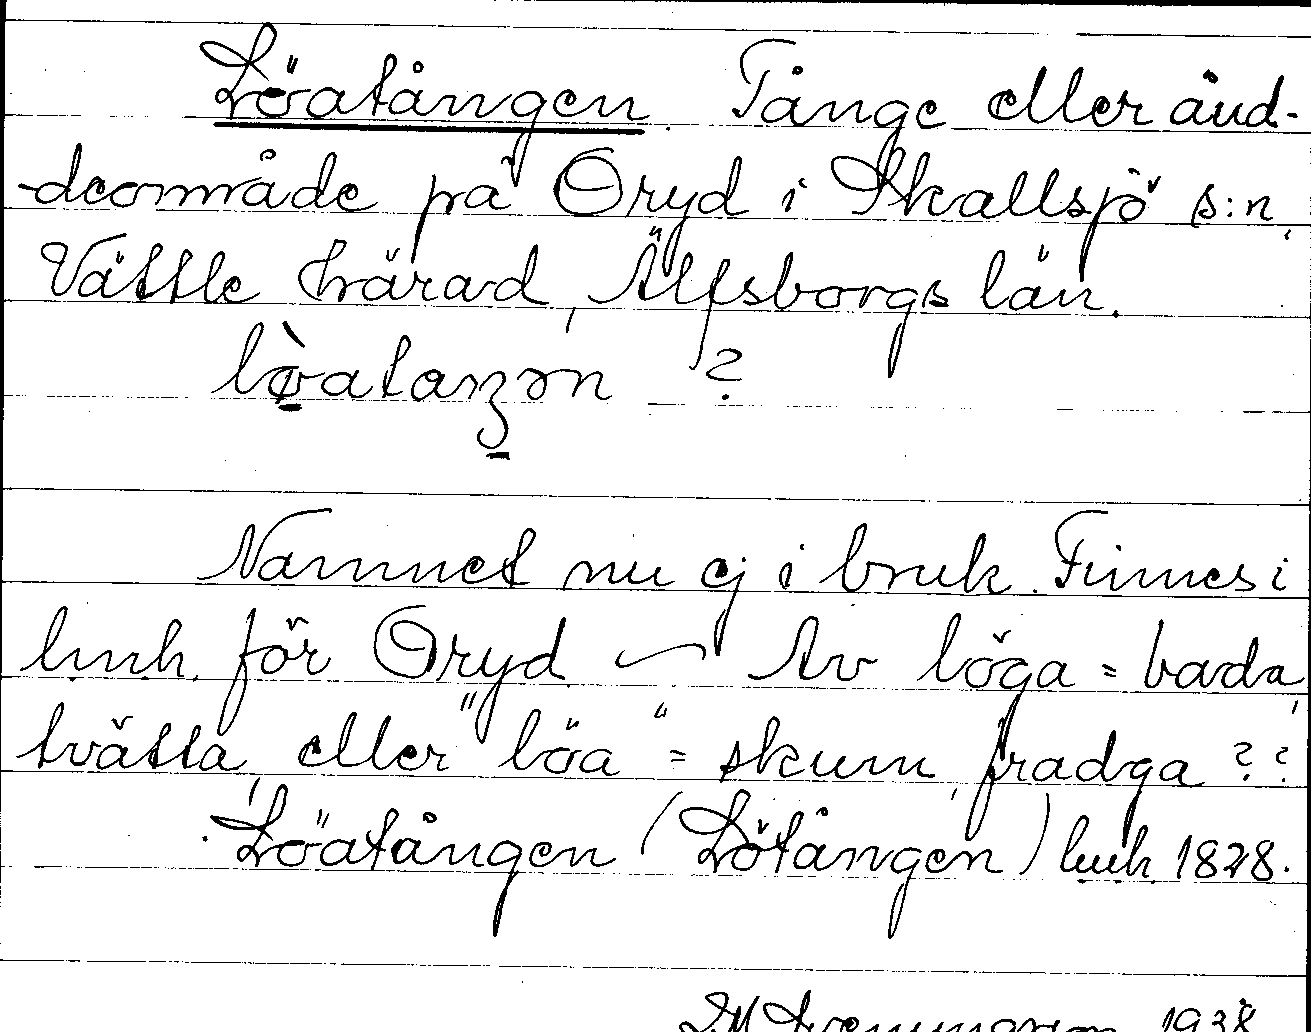 Löatången. Tånge eller äud-
deområde på Öryd i Skallsjö s:n,
Vättle härad, Älfsborgs län.
lo̠atanʒən ?
Namnet nu ej i bruk. Finnes i
lmk. för Öryd. — Av löga = bada,
tvätta, eller "löa" = skum, fradga ??
Löatången (Lötången) lmk 1828.
1938